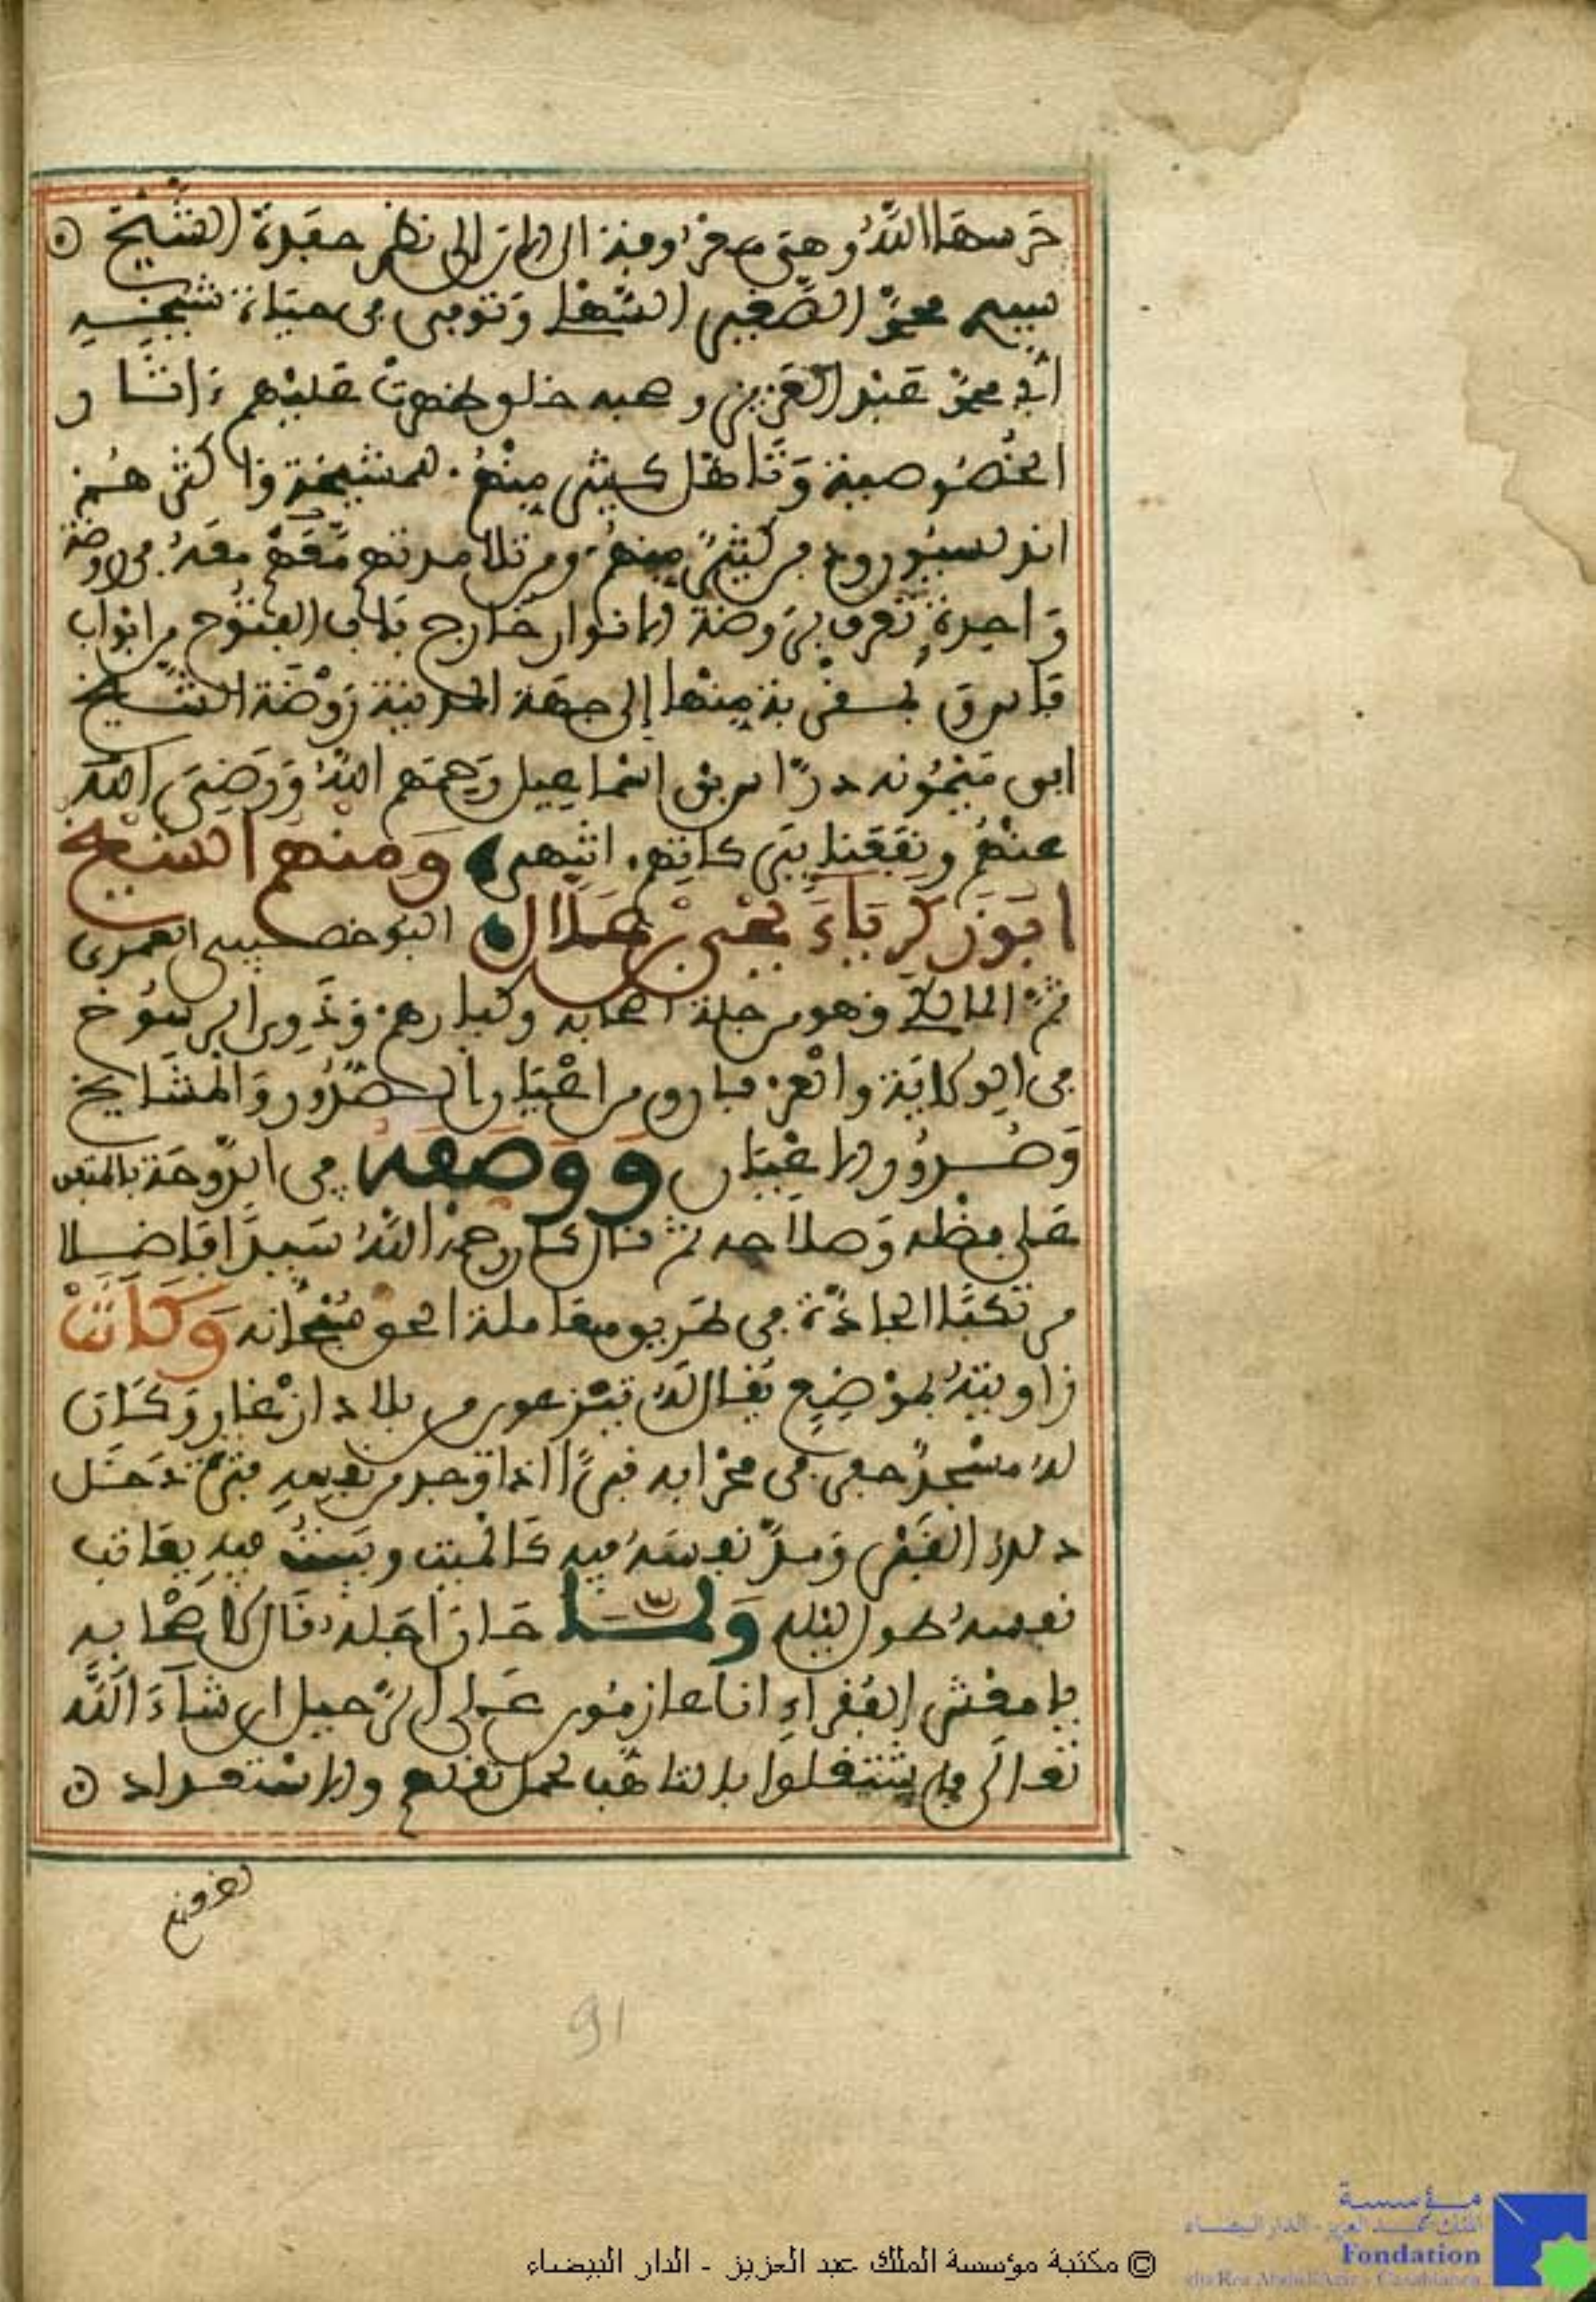 حَرسهَا اللَّهُ وهى معروفة الى الان الى نظر حفدة الشيخ
سيدي محمد الصغير السَّهْلى وَتوفى في حياة شيخه
أبي محمد عبْد العزيز وصحبه خلق ظهرت عليْهم ءاثار
الخصُوصية وَتاهل كثير مِنْهُم للمشيخة واكثرهم
اندلسيون ودفن كثيرٌ منهم ومن تلامدتهم مَعَهُمْ معَهُ في روضة
وَاحدة تعرف بروضة الانوار خارج باب الفتوح من ابواب
فاس بمقربة منها إلى جهة المدينة رَوْضة الشيخ
ابى ميْمُونه درَّاس بن إسْماعيل رَحِمَهم اللهُ وَرَضِيَ الله
عنْهُم ونفَعَنا ببَركاتهم انتهى وَمنْهُم الشيْخ
ابُوزَكَرِيَّاءَ يَحْيى بْن عَلَّال البوخصيبى العمرى
ثمَّ المالكي وَهو من جلة اصحابه وكبارهم وَذَوى الرسُوخ
في الولاية والعرفان ومن اعْيَان الصُّدُور وَالمشَايخ
وَصُدُور الاعْيَان وَوَصَفَهُ في الدَّوحَة بالمتفق
عَلى فضْله وَصلاحه ثم قال كان رحمهُ اللَّهُ سَيِّدًا فاضلا
مرتكبًا الجادَّة في طريق معَاملة الحق سُبْحانه وَكَانَتْ
زاويتهُ بموْضِع يُقال لهُ تيْزغور من بلاد ازْغار وَكَان
لهُ مسْجدٌ حفر في محْرابه قبرًا اذا وَجد من نفسه فترةً دَخَل
ذلك القَبْر وَمدَّ نفسَهُ فيه كالميت ويبيتُ فيه يعَاتب
نفسهُ طول ليله وَلمَّا حَان أجَله قال لأصْحابه
يا معْشر الفُقراءِ انا عازمُون عَلى الرَّحيل ان شاءَ اللَّه
تعالَى فاشتغلوا بالتاهُّب لحمل ثقلهم والاسْتعداد
91
© مكتبة مؤسسة الملك عبد العزيز - الدار البيضاء
مؤسسة
الملك عبد العزيز - الدار البيضاء
Fondation
du Roi Abdul Aziz - Casablanca